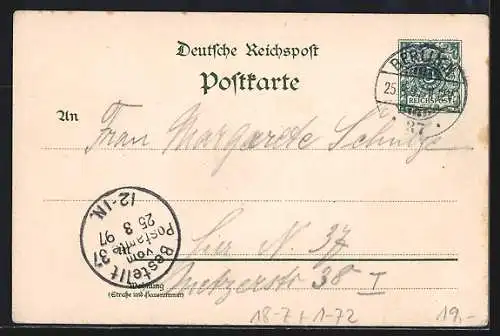 Deutsche Reichspost
Postkarte
BERLIN
25.
REICHSPOST
37
An Frau Margarete Schulze
12-1N.
Bestellt
vom
Postamte 37
25 8 97
N. 37
Metzerstr 38 I
Wohnung
(Straße und Hausnummer)
18-7+1-72
19.-